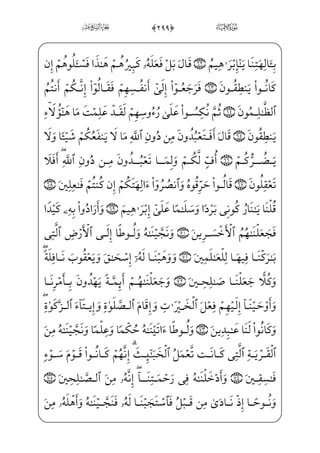 سُورَةُ الأَنْبِيَاءِ ﴿٢٩٩﴾ الجُزْءُ السَّابِعَ عَشَرَ
بِـَٔالِهَتِنَا يَٰٓإِبْرَٰهِيمُ ۝ قَالَ بَلْ فَعَلَهُۥ كَبِيرُهُمْ هَٰذَا فَسْـَٔلُوهُمْ إِن
كَانُوا۟ يَنطِقُونَ ۝ فَرَجَعُوٓا۟ إِلَىٰٓ أَنفُسِهِمْ فَقَالُوٓا۟ إِنَّكُمْ أَنتُمُ
ٱلظَّٰلِمُونَ ۝ ثُمَّ نُكِسُوا۟ عَلَىٰ رُءُوسِهِمْ لَقَدْ عَلِمْتَ مَا هَٰٓؤُلَآءِ
يَنطِقُونَ ۝ قَالَ أَفَتَعْبُدُونَ مِن دُونِ ٱللَّهِ مَا لَا يَنفَعُكُمْ شَيْـًٔا وَلَا
يَضُرُّكُمْ ۝ أُفٍّ لَّكُمْ وَلِمَا تَعْبُدُونَ مِن دُونِ ٱللَّهِ ۖ أَفَلَا
تَعْقِلُونَ ۝ قَالُوا۟ حَرِّقُوهُ وَٱنصُرُوٓا۟ ءَالِهَتَكُمْ إِن كُنتُمْ فَٰعِلِينَ ۝
قُلْنَا يَٰنَارُ كُونِى بَرْدًا وَسَلَٰمًا عَلَىٰٓ إِبْرَٰهِيمَ ۝ وَأَرَادُوا۟ بِهِۦ كَيْدًا
فَجَعَلْنَٰهُمُ ٱلْأَخْسَرِينَ ۝ وَنَجَّيْنَٰهُ وَلُوطًا إِلَى ٱلْأَرْضِ ٱلَّتِى
بَٰرَكْنَا فِيهَا لِلْعَٰلَمِينَ ۝ وَوَهَبْنَا لَهُۥٓ إِسْحَٰقَ وَيَعْقُوبَ نَافِلَةً ۖ
وَكُلًّا جَعَلْنَا صَٰلِحِينَ ۝ وَجَعَلْنَٰهُمْ أَئِمَّةً يَهْدُونَ بِأَمْرِنَا
وَأَوْحَيْنَآ إِلَيْهِمْ فِعْلَ ٱلْخَيْرَٰتِ وَإِقَامَ ٱلصَّلَوٰةِ وَإِيتَآءَ ٱلزَّكَوٰةِ ۖ
وَكَانُوا۟ لَنَا عَٰبِدِينَ ۝ وَلُوطًا ءَاتَيْنَٰهُ حُكْمًا وَعِلْمًا وَنَجَّيْنَٰهُ مِنَ
ٱلْقَرْيَةِ ٱلَّتِى كَانَت تَّعْمَلُ ٱلْخَبَٰٓئِثَ ۗ إِنَّهُمْ كَانُوا۟ قَوْمَ سَوْءٍ
فَٰسِقِينَ ۝ وَأَدْخَلْنَٰهُ فِى رَحْمَتِنَآ ۖ إِنَّهُۥ مِنَ ٱلصَّٰلِحِينَ ۝
وَنُوحًا إِذْ نَادَىٰ مِن قَبْلُ فَٱسْتَجَبْنَا لَهُۥ فَنَجَّيْنَٰهُ وَأَهْلَهُۥ مِنَ